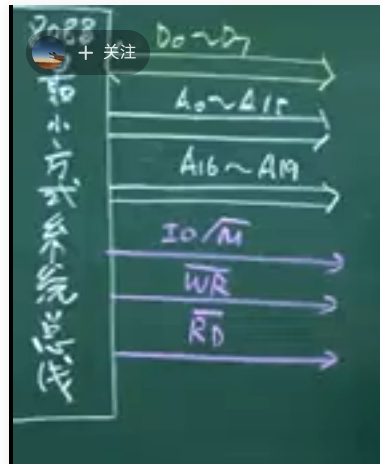 8088
最小方式系统总线
+ 关注
D0~D7
A0~A15
A16~A19
IO/M̅
W̅R̅
R̅D̅